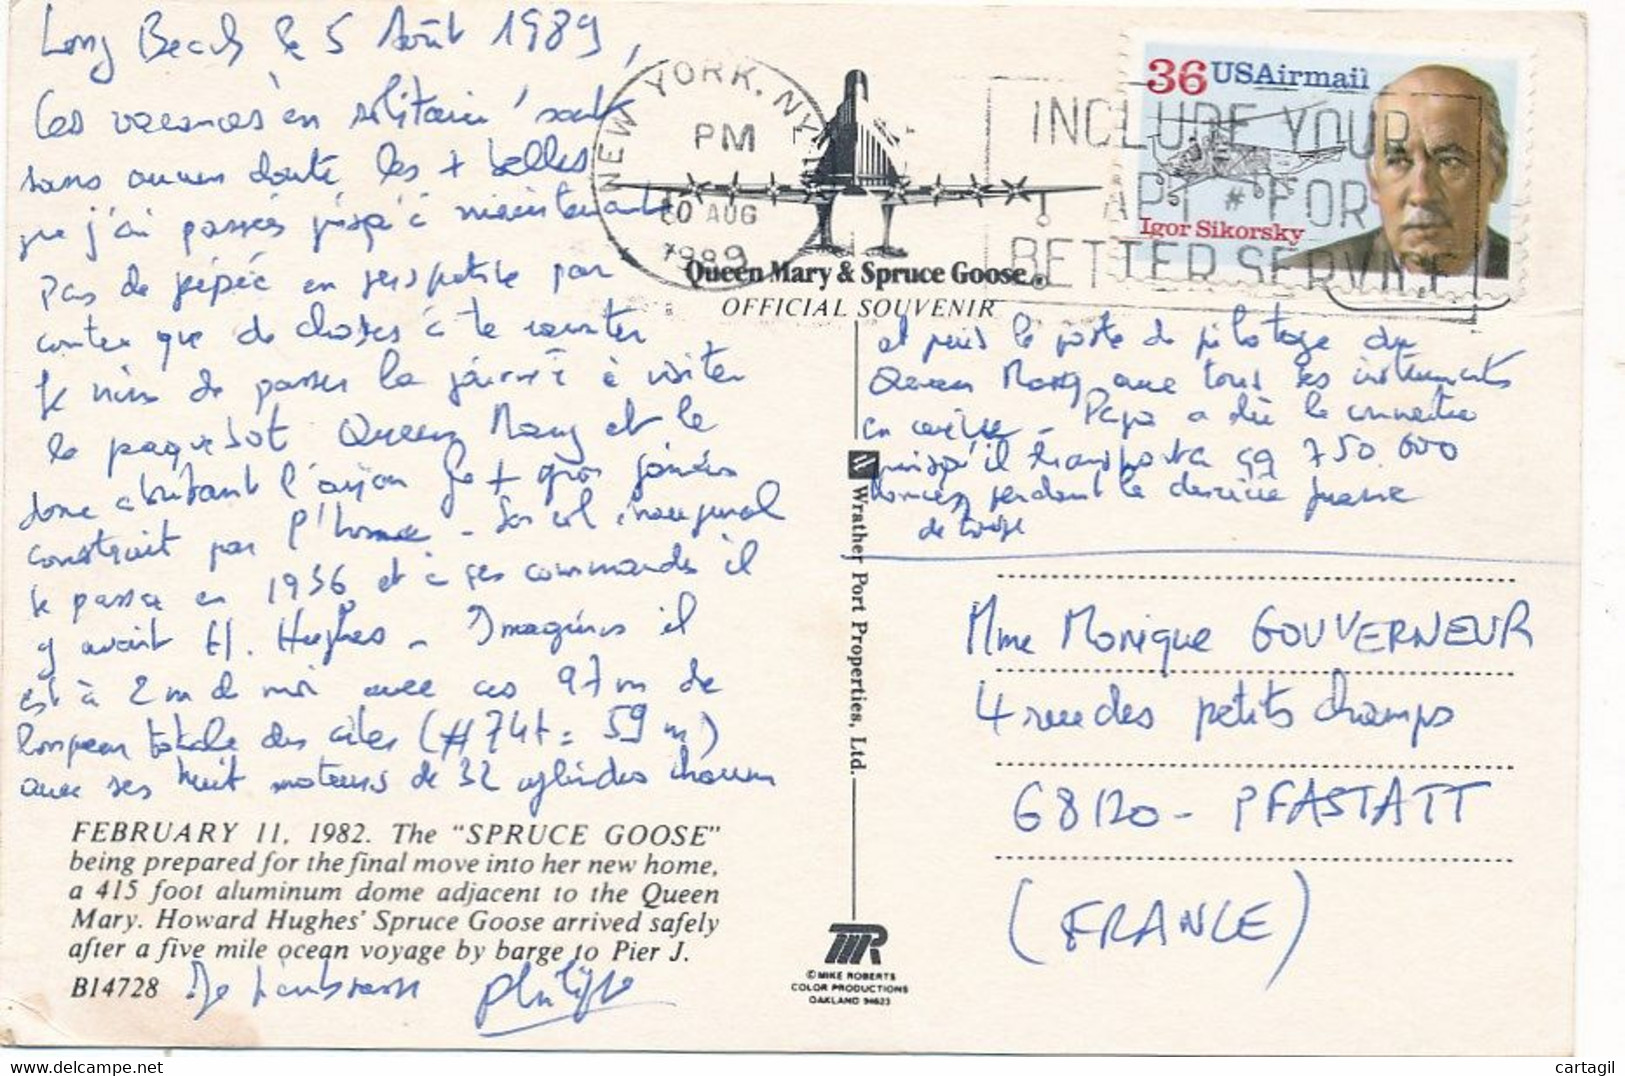 Long Beach le 5 Août 1989,
Ces vacances "en solitaire" sont
sans aucun doute les + belles
que j'ai passées jusqu'à maintenant
Pas de pépée en perspective par
contre que de choses à te raconter
Je viens de passer la journée à visiter
le paquebot Queen Mary et le
dome abritant l'avion le + gros jamais
construit par l'homme - Son vol inaugural
se passa en 1956 et à ses commandes il
y avait H. Hughes - Imagines il
est à 2m de moi avec ces 97m de
longueur totale des ailes (# 747 = 59 m)
avec ses huit moteurs de 32 cylindres chacun
NEW YORK, NY
PM
10 AUG
1989
Queen Mary & Spruce Goose®
OFFICIAL SOUVENIR
36 USAirmail
Igor Sikorsky
INCLUDE YOUR
APT # FOR
BETTER SERVICE
et puis le poste de pilotage du
Queen Mary avec tous ses instruments
en cuivre - Papa a dû le connaitre
puisqu'il transporta 750.000
pendant la dernière guerre
Wrather Port Properties, Ltd.
Mme Monique GOUVERNEUR
4 rue des petits champs
68120 - PFASTATT
(FRANCE)
FEBRUARY 11, 1982. The "SPRUCE GOOSE"
being prepared for the final move into her new home,
a 415 foot aluminum dome adjacent to the Queen
Mary. Howard Hughes' Spruce Goose arrived safely
after a five mile ocean voyage by barge to Pier J.
B14728
Je t'embrasse Philippe
MR
© MIKE ROBERTS
COLOR PRODUCTIONS
OAKLAND 94623
cartagil